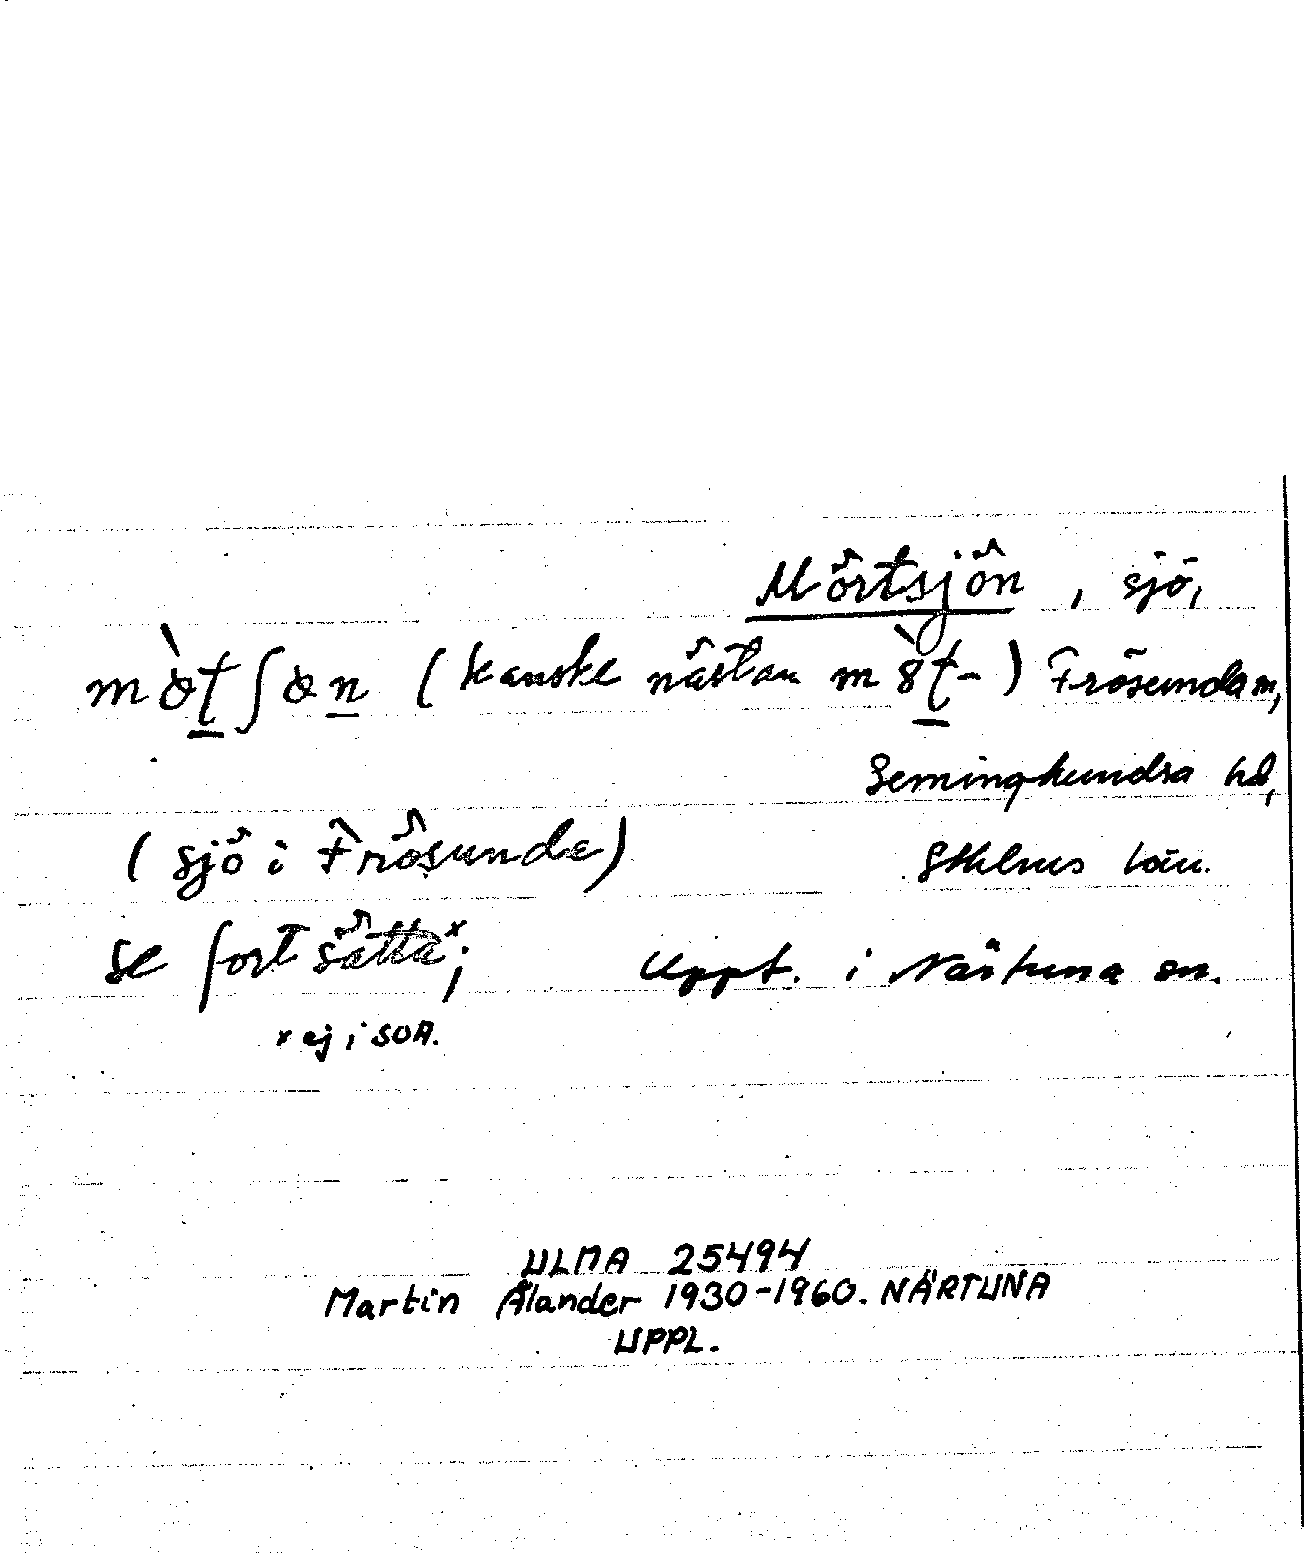 Mörtsjön, sjö,
(kanske nästan m8t-) Frösunda sn,
Seminghundra hd,
(sjö i Frösunda) Sthlms län.
se fortsätta x;
Uppt. i Närtuna sn.
x ej i SOA.
ULMA 25494
Martin Ålander 1930-1960. NÄRTUNA
UPPL.